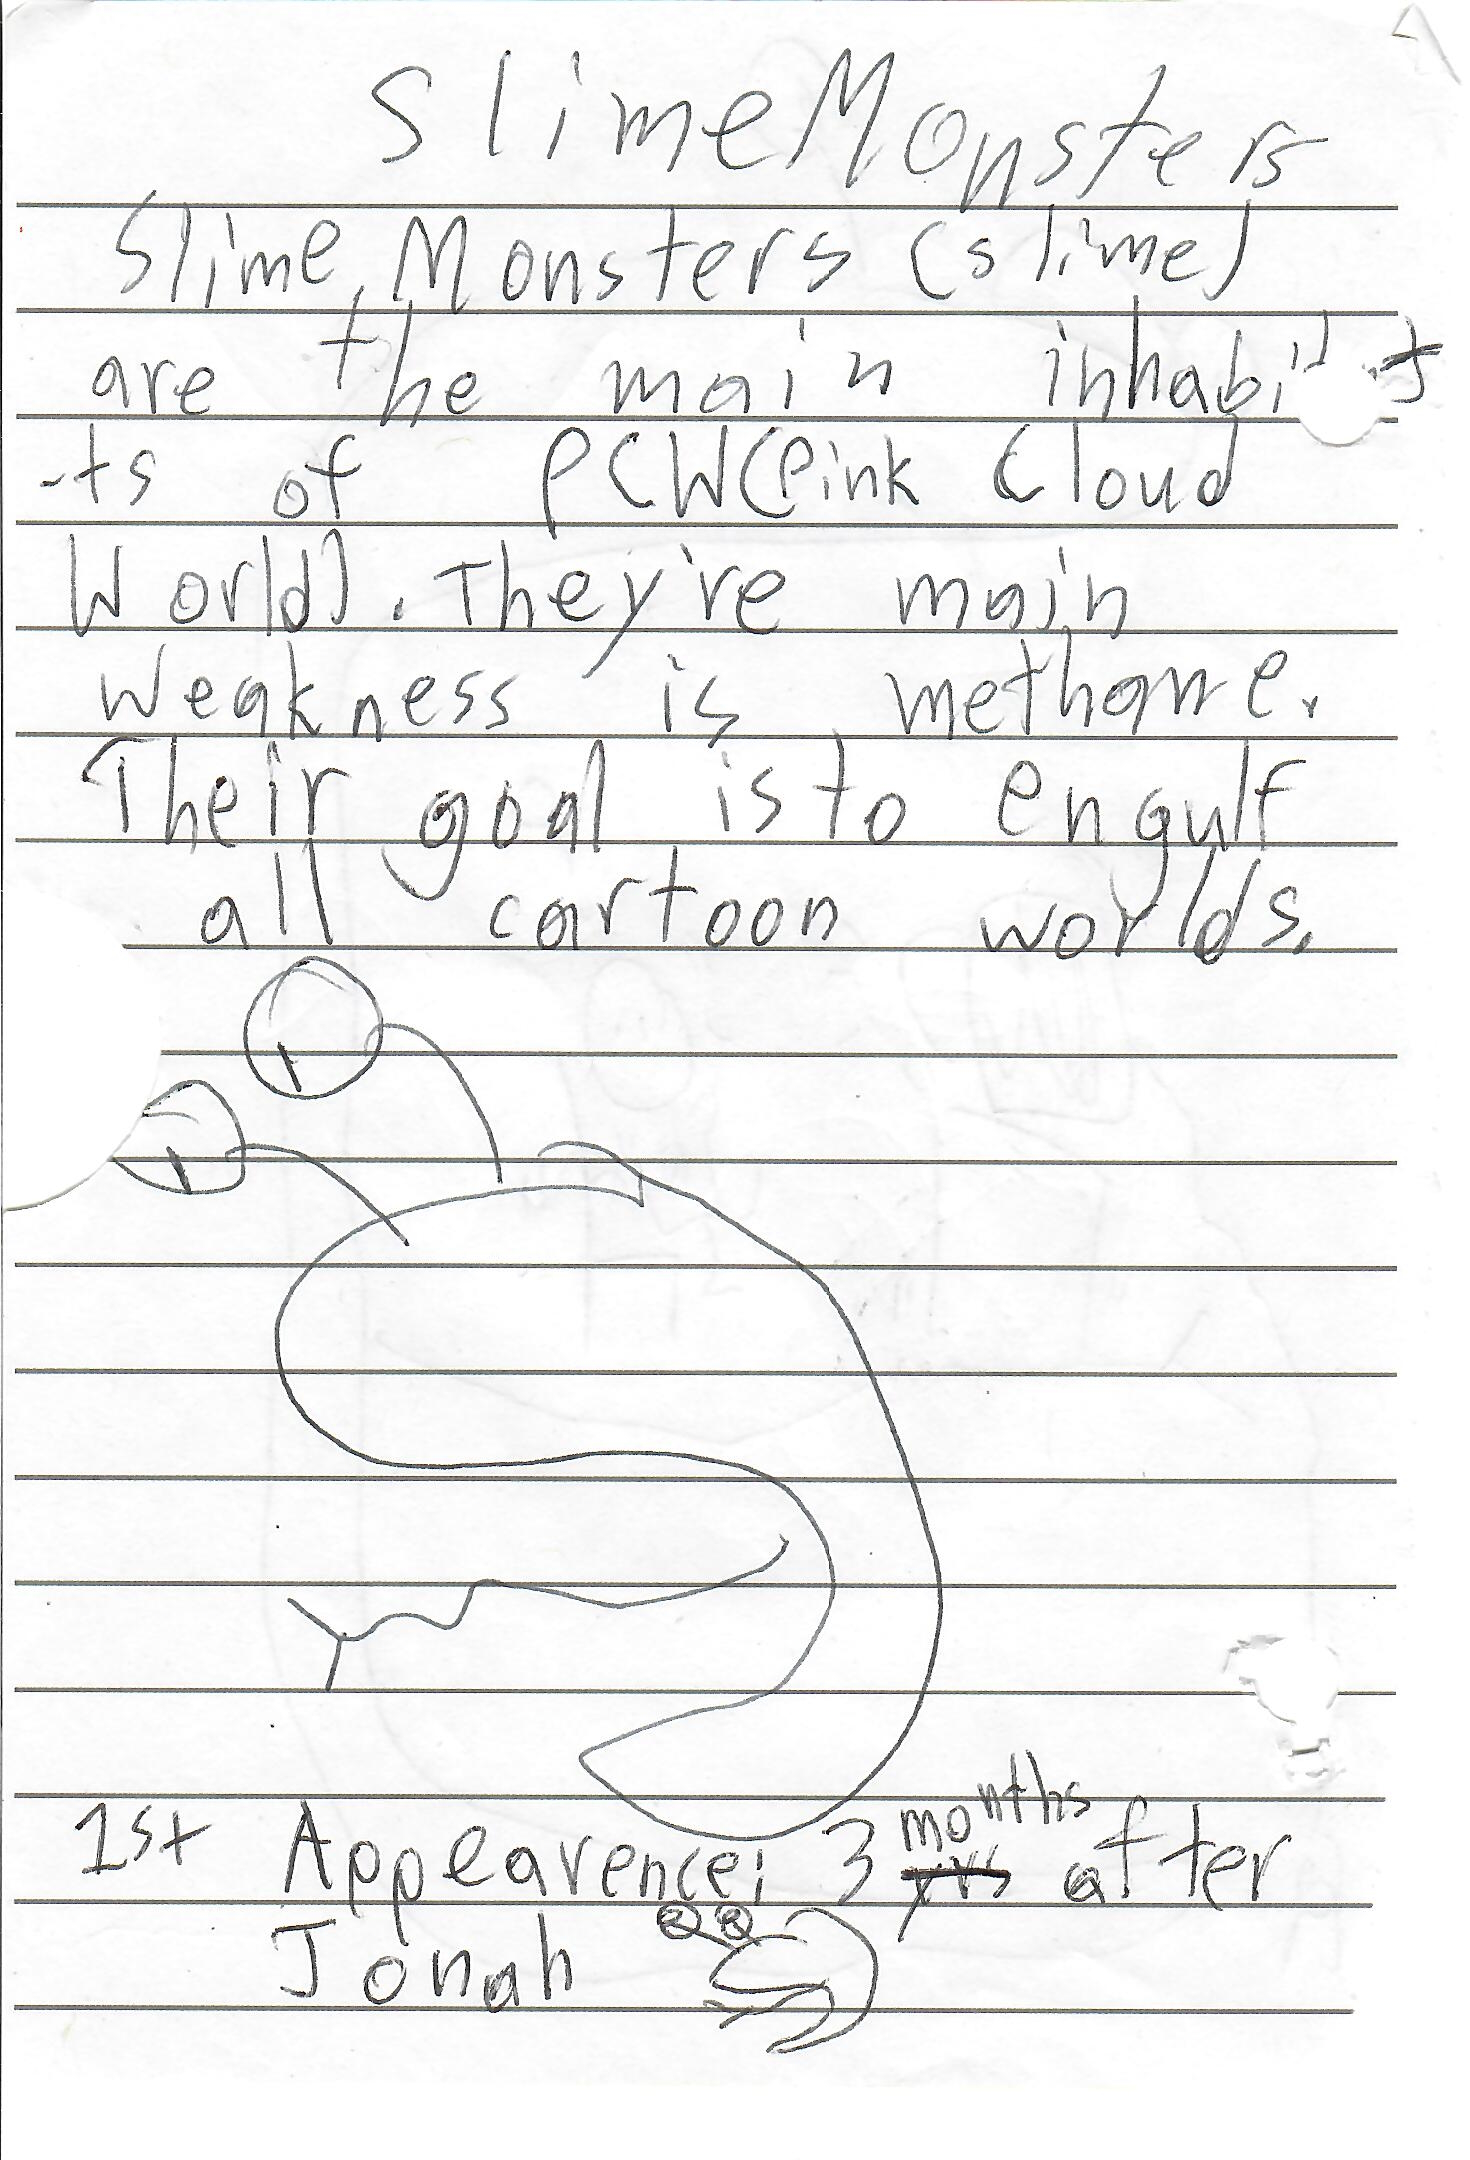 SlimeMonsters
Slime Monsters (slime)
are the main inhabit
-ts of PCW(Pink Cloud
World). They're main
weakness is methane.
Their goal is to engulf
all cartoon worlds.
1st Appearence: 3 months yrs after
Jonah